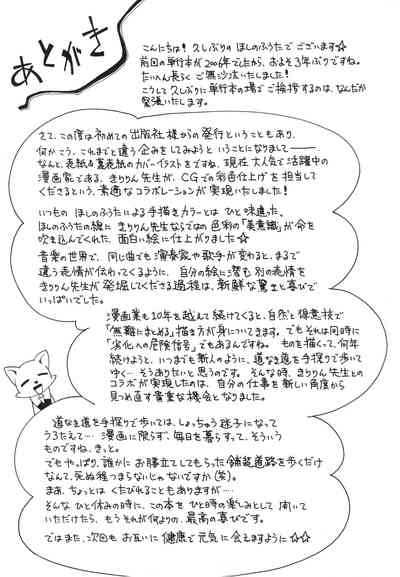 あとがき
こんにちは! 久しぶりの ほしのふうたで ございます☆
前回の単行本が2006年でしたから、およそ3年ぶりですね。
たいへん長らく ご無沙汰いたしました!
こうして久しぶりに単行本の場でご挨拶するのは、なんだか
緊張いたします。
さて、この度は初めての出版社様からの発行ということもあり、
何かこう、これまでと違う企みをしてみようと いうことになりまして──
なんと、表紙&裏表紙のカバーイラストをですね、現在大人気で活躍中の
漫画家である、きりりん先生が、CGでの彩色仕上げを担当して
くださるという、素適なコラボレーションが実現いたしました!
いつもの ほしのふうたによる手描きカラーとは ひと味違った、
ほしのふうたの線に きりりん先生ならではの 色彩の「美意識」が命を
吹き込んでくれた、面白い絵に仕上がりました☆
音楽の世界で、同じ曲でも演奏家や歌手が変わると、まるで
違う表情が伝わってくるように、自分の絵に潜む別の表情を
きりりん先生が発掘してくださる過程は、新鮮な驚きと喜びで
いっぱいでした。
漫画業も10年を越えて続けてくると、自然と得意技で
「無難にまとめる」描き方が身についてきます。でもそれは同時に
「劣化への危険信号」でもあるんですね。 ものを描くって、何年
続けようと、いつまでも新人のように、道なき道を手探りで歩いて
ゆく… そうありたいと思うのです。 そんな時、きりりん先生との
コラボが実現したのは、自分の仕事を新しい角度から
見つめ直す貴重な機会となりました。
道なき道を手探りで歩いては、しょっちゅう迷子になって
うろたえて… 漫画に限らず、毎日を暮らすって、そういう
ものですね、きっと。
でもやっぱり、誰かにお膳立てしてもらった舗装道路を歩くだけ
なんて、死ぬ程つまらないじゃないですか(笑)。
まあ、ちょっとは くたびれることもありますが‥‥
そんな ひと休みの時に、この本を ひと時の楽しみとして 開いて
いただけたら、もう それが何よりの、最高の喜びです。
ではまた、次回も お互いに 健康で 元気に 会えますように☆☆